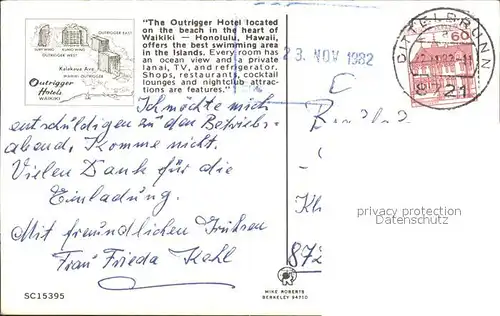 "The Outrigger Hotel located
on the beach in the heart of
Waikiki — Honolulu, Hawaii,
offers the best swimming area
in the Islands. Every room has
an ocean view and a private
lanai, TV, and refrigerator.
Shops, restaurants, cocktail
lounges and nightclub attrac-
tions are features."
OUTRIGGER EAST
SURF WING
OUTRIGGER WEST
Kalakaua Ave.
WAIKIKI OUTRIGGER
Outrigger
Hotels
WAIKIKI
23. NOV 1982
DITTELBRUNN
60
8721
Ich möchte mich
entschuldigen zu den Betriebs-
abend, Komme nicht.
Vielen Dank für die
Einladung.
Mit freundlichen Grüßen
Frau Frieda Kohl
Kl
872
privacy protection
Datenschutz
SC15395
MIKE ROBERTS
BERKELEY 94710